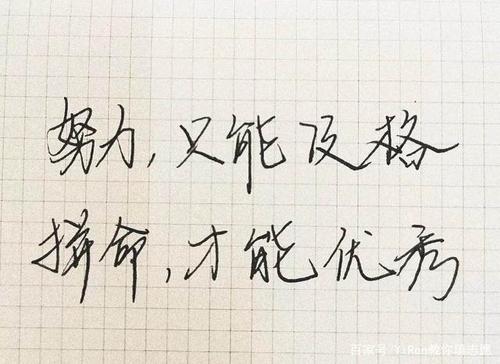 努力，只能及格
拼命，才能优秀
百家号/YiRan教你周志牌